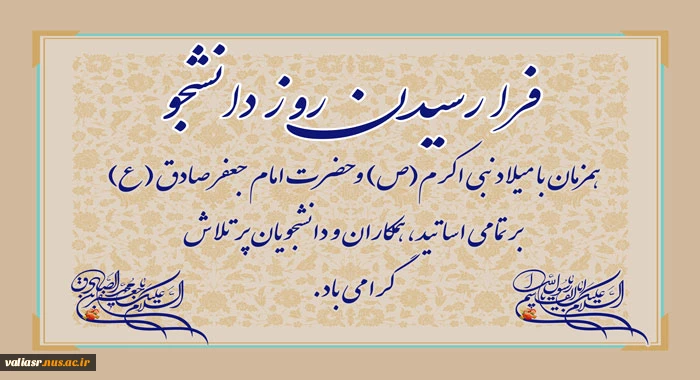 فرا رسیدن روز دانشجو
همزمان با میلاد نبی اکرم (ص) و حضرت امام جعفر صادق (ع)
بر تمامی اساتید، همکاران و دانشجویان پر تلاش
گرامی باد.
السلام علیک یا رسول الله
السلام علیک یا جعفر بن محمد الصادق
valiasr.nus.ac.ir